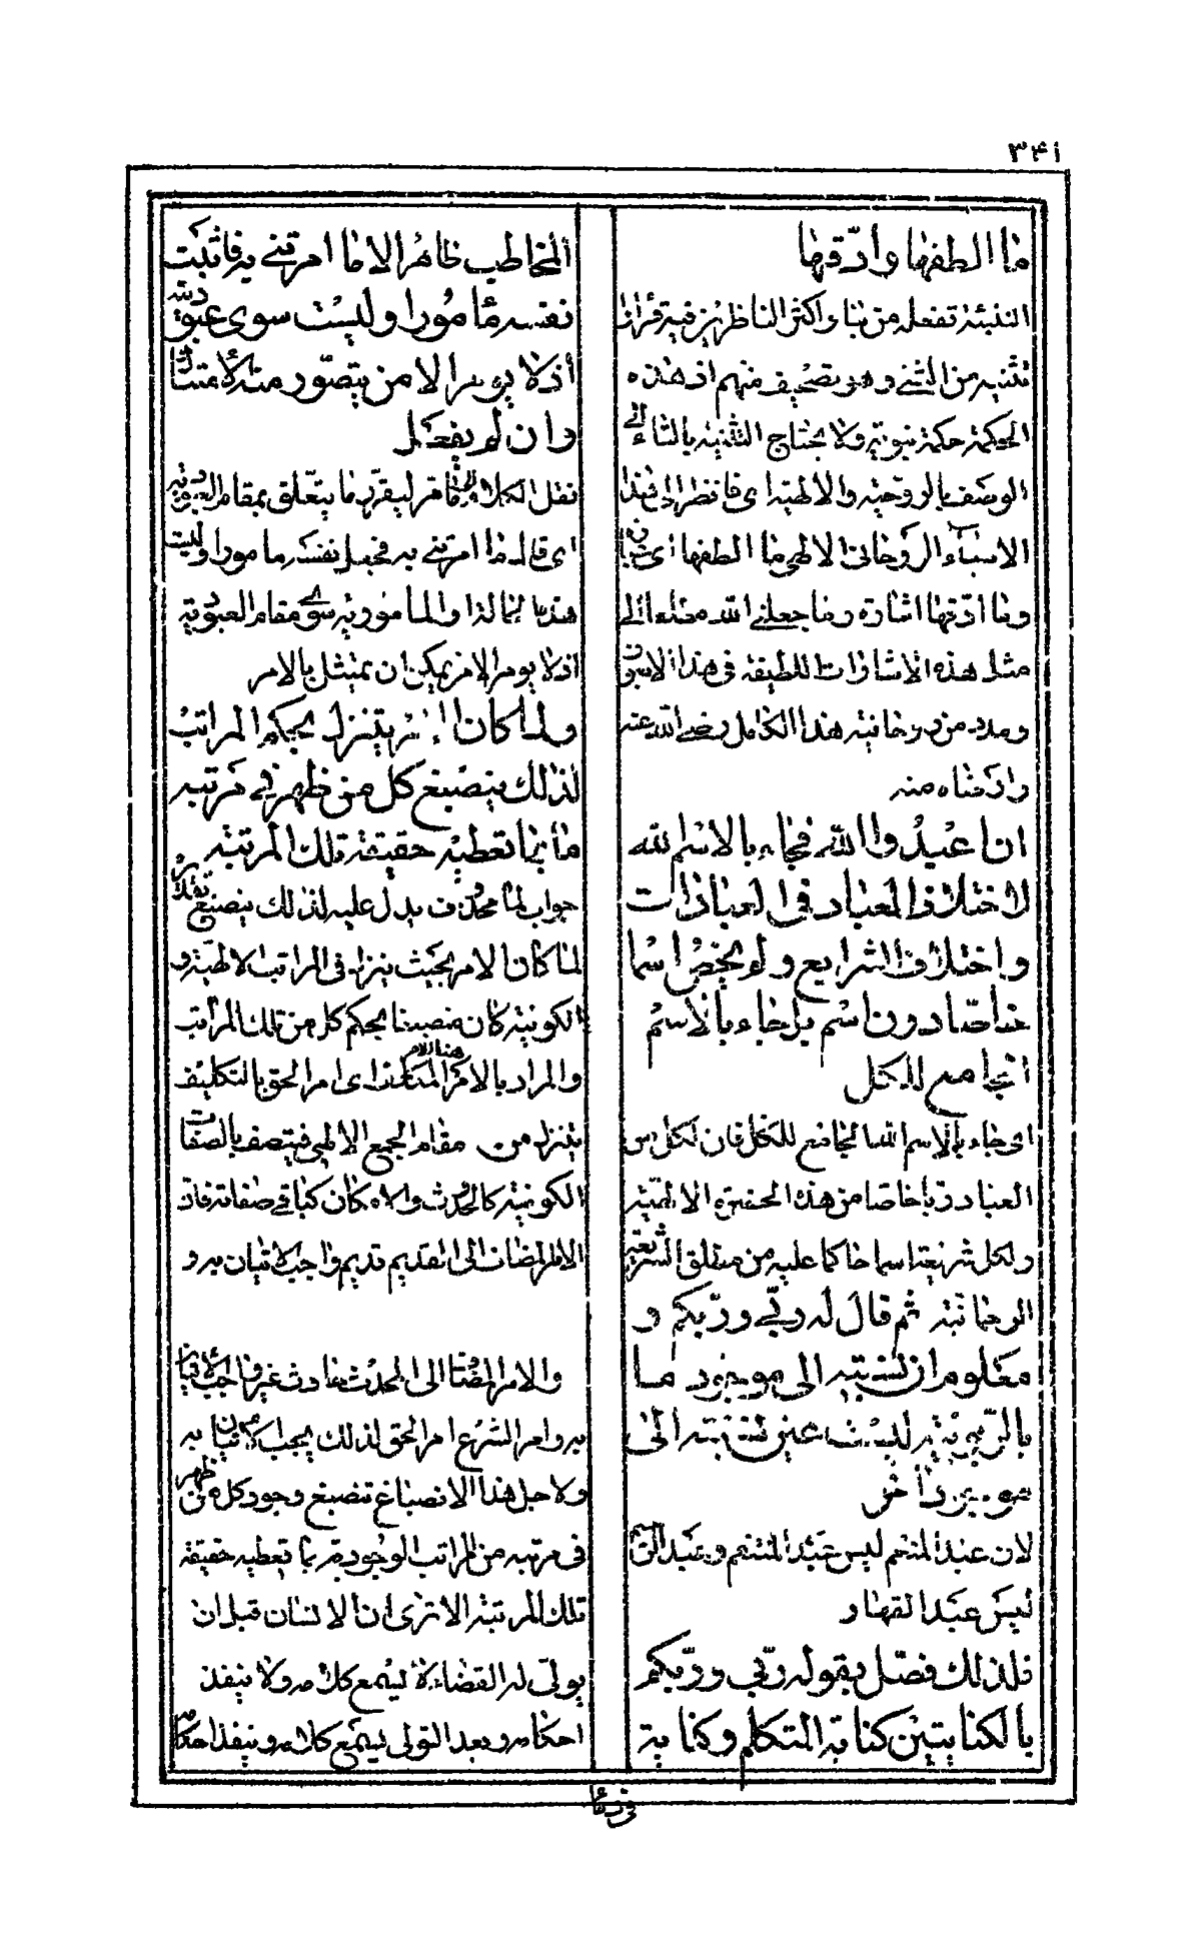 ٣٤١
ما الطفها وادّقها
التنبئة تفعلة من نباء واكثر الناظرين فيه قرأها
تثنية من الثنى وهو تصحيف منهم اذ هذه
الحكمة حكمة نبوتيه ولا يحتاج التثنية بالثاء الى
الوصف بالروحية والالهية اى فانظر الى هذا
الانباء الروحانى الالهى ما الطفها اى
وما ادقها اشارة وما جعلنى الله مطلعا الى
مثل هذه الاشارات للطيفة فى هذا
ومدد من روحانية هذا الكامل رضى الله عنه
وارضاه منه
ان اعبدُوا الله فجاء بالاسم الله
لاختلاف العباد فى العبادات
واختلاف الشرايع ولم يخص اسما
خاصّا دون اسم بل جاء بالاسم
الجامع للكل
اى جاء بالاسم الله الجامع للكل فان لكل من
العباد ربا خاصا من هذه الحضرة الالهية
ولكل شريعة اسما حاكما عليه من مطلق الشريعة
الرحمانية ثم قال له ربّى وربّكم و
معلوم ان نسبته الى موجود ما
بالرّبوبيّة ليست عين نسبته الى
موجود آخر
لان عبد المنعم ليس عبد المنتقم وعبد الرحيم
ليس عبد القهار و
فلذلك فصّل بقوله ربّى وربّكم
بالكنايتين كناية المتكلم وكناية
المخاطب ظاهرا الا ما امرتنى به فاثبت
نفسه مأمورا وليست سوى عبوديته
اذ لا يومر الا من يتصوّر منه الامتثال
وان لم يفعل
نقل الكلام ليقرر ما يتعلق بمقام العبودية
اى قال ما امرتنى به فجعل نفسه مامورا وليست
هذه المأمورية سوى مقام العبودية
اذ لا يومر الا من يمكن ان يمتثل بالامر
ولما كان الامر يتنزل بحكم المراتب
لذلك ينصبغ كل من ظهر فى مرتبه
ما بما تعطيه حقيقة تلك المرتبة
جواب لما محذوف يدل عليه لذلك ينصبغ تقديره
لما كان الامر بحيث ينزل فى المراتب الالهية و
الكونية كان منصبغا بحكم كل من تلك المراتب
والمراد بالامر هنا الامر اى امر الحق بالتكليف
يتنزل من مقام الجمع الالهى فيتصف بالصفات
الكونية كالحدوث والامكان كما فى صفاته فان
الامر المضاف الى القديم قديم واجب الاتيان به و

والامر المضاف الى المحدث حادث غير واجب الاتيان
به وامر الشرع امر الحق لذلك يجب الاتيان به
ولاجل هذا الانصباغ تنصبغ وجود كل من ظهر
فى مرتبه من المراتب الوجودية بما تعطيه حقيقة
تلك المرتبة الا ترى ان الانسان قبل ان
يولّى له القضاء لا يسمع كلامه ولا ينفذ
احكامه وبعد التولى يسمع كلامه وينفذ احكامه